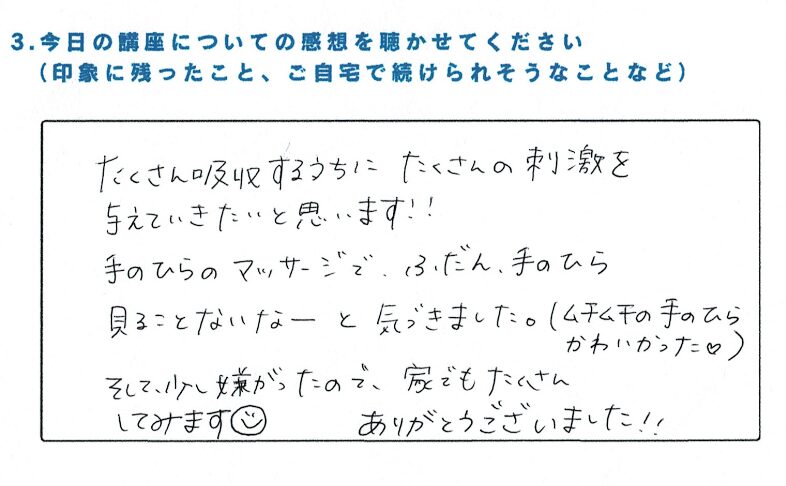 3.今日の講座についての感想を聴かせてください
(印象に残ったこと、ご自宅で続けられそうなことなど)
たくさん吸収するうちに たくさんの刺激を
与えていきたいと思います!!
手のひらのマッサージで、ふだん、手のひら
見ることないなーと気づきました。(ムチムチの手のひら
かわいかった♡)
そして、少し嫌がったので、家でもたくさん
してみます☺ ありがとうございました!!